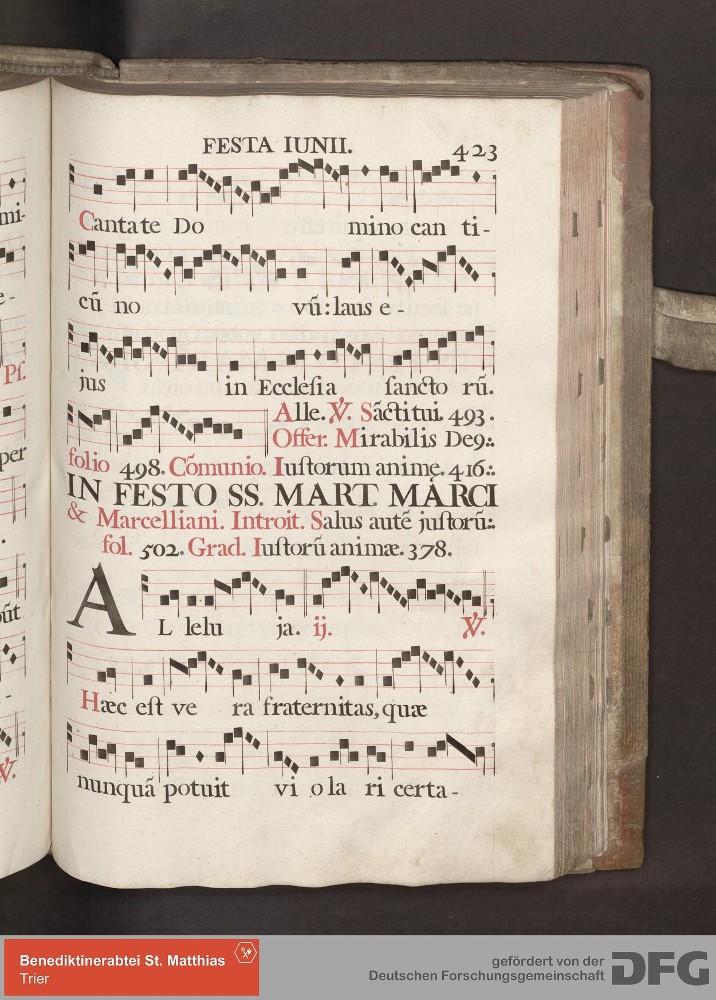 FESTA IUNII.
423
Cantate Do mino can ti-
cū no vū: laus e-
jus in Ecclesia sancto rū.
Alle. ℣. Sāctitui. 493.
Offer. Mirabilis De9.
folio 498. Cōmunio. Iustorum animę. 416.
IN FESTO SS. MART. MARCI
& Marcelliani. Introit. Salus autē justorū.
fol. 502. Grad. Iustorū animæ. 378.
AL lelu ja. ij. ℣.
Hæc est ve ra fraternitas, quæ
nunquā potuit vi o la ri certa-
mi-
e-
Ps.
per
℣.
Benediktinerabtei St. Matthias
Trier
gefördert von der
Deutschen Forschungsgemeinschaft
DFG